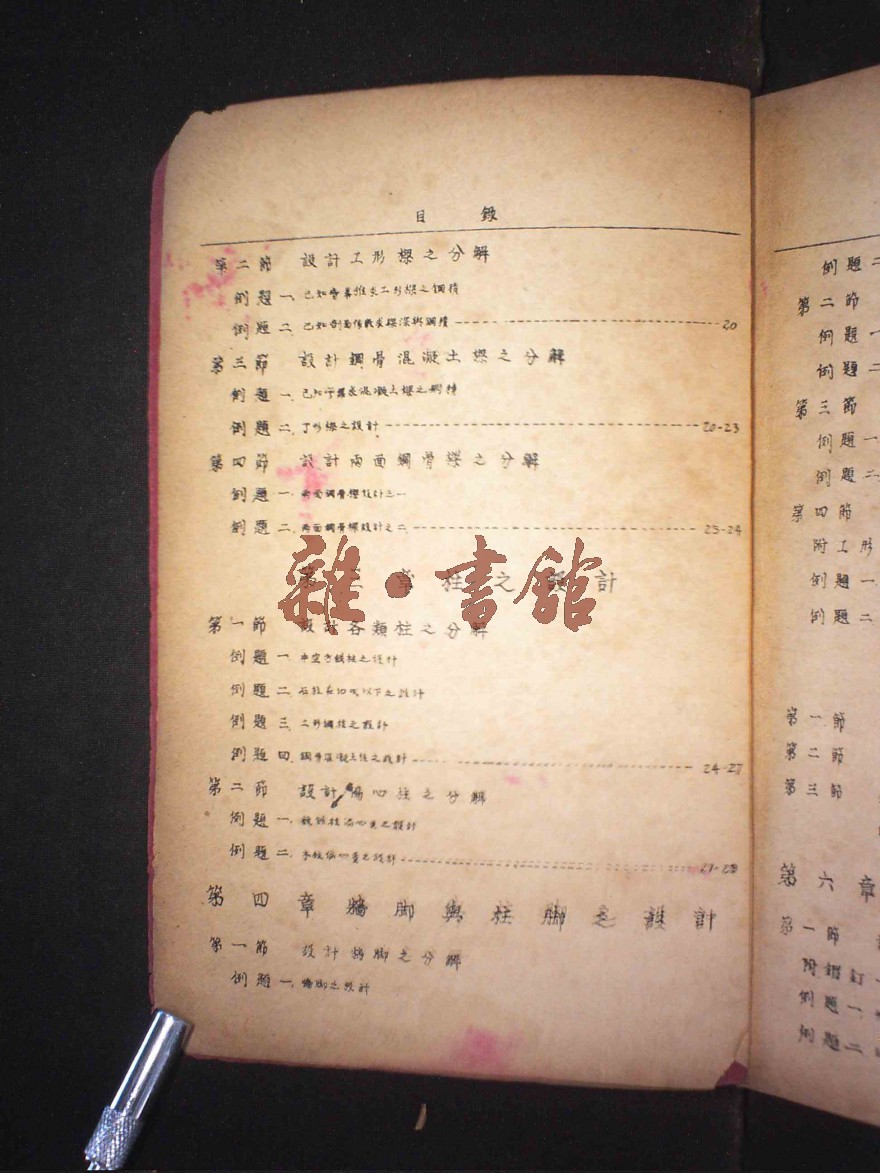 目 錄
第二節 設計工形樑之分解
例題一. 已知 求工形樑之鋼積
例題二. 已知 求樑深與鋼積 20
第三節 設計鋼骨混凝土樑之分解
例題一. 已知 求混凝土樑之鋼積
例題二. 丁形樑之設計 20-23
第四節 設計兩面鋼骨樑之分解
例題一. 兩面鋼骨樑設計之一
例題二. 兩面鋼骨樑設計之二 23-24
第三章 柱之設計
雜·書館
第一節 設計各類柱之分解
例題一. 中空方鐵柱之設計
例題二. 石柱長10呎以下之設計
例題三. 工形鋼柱之設計
例題四. 鋼骨混凝土柱之設計 24-27
第二節 設計偏心柱之分解
例題一. 鐵柱偏心重之設計
例題二. 木柱偏心重之設計 27-28
第四章 牆脚與柱脚之設計
第一節 設計牆脚之分解
例題一. 牆脚之設計
例題二
第二節
例題一
例題二
第三節
例題一
例題二
第四節
附工形
例題一
例題二
第一節
第二節
第三節
第六章
第一節
附鉚釘
例題一
例題二